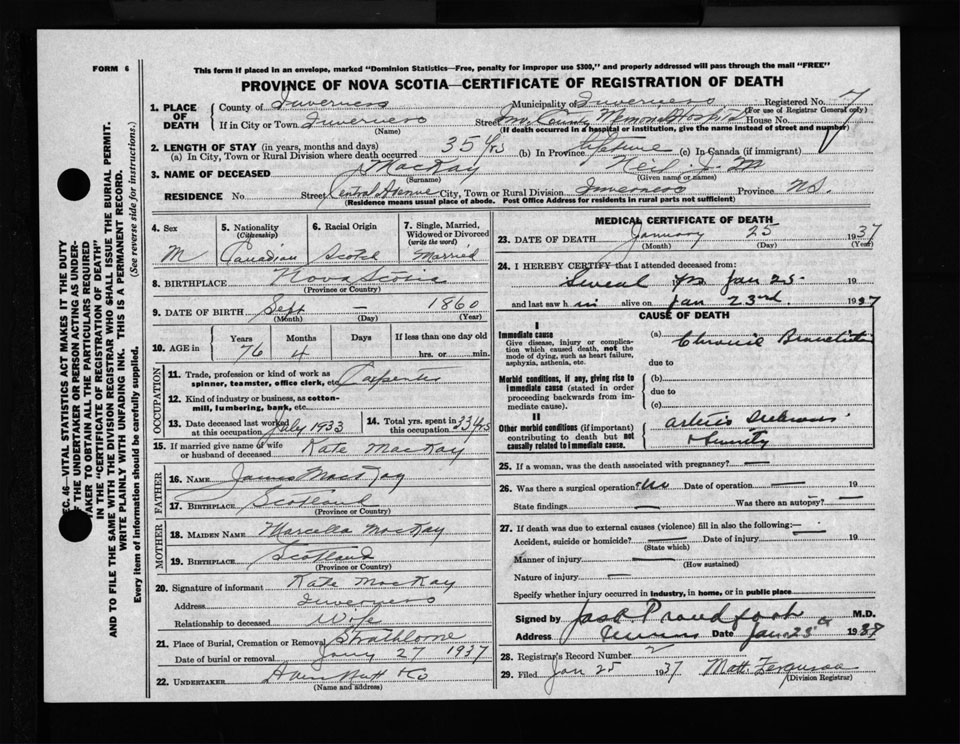 FORM 6
This form if placed in an envelope, marked "Dominion Statistics—Free, penalty for improper use $300," and properly addressed will pass through the mail "FREE"
PROVINCE OF NOVA SCOTIA—CERTIFICATE OF REGISTRATION OF DEATH
1. PLACE OF DEATH
County of Inverness Municipality of Inverness Registered No. 7
(For use of Registrar General only)
If in City or Town Inverness Street Inv. County Memorial Hospital House No.
(Name) (If death occurred in a hospital or institution, give the name instead of street and number)
2. LENGTH OF STAY (in years, months and days)
(a) In City, Town or Rural Division where death occurred 35 yrs (b) In Province Lifetime (c) In Canada (if immigrant)
3. NAME OF DECEASED MacKay Neil J. M
(Surname) (Given name or names)
RESIDENCE No. Street Central Avenue City, Town or Rural Division Inverness Province N.S.
(Residence means usual place of abode. Post Office Address for residents in rural parts not sufficient)
4. Sex M
5. Nationality (Citizenship) Canadian
6. Racial Origin Scotch
7. Single, Married, Widowed or Divorced (write the word) Married
8. BIRTHPLACE Nova Scotia
(Province or Country)
9. DATE OF BIRTH Sept 1860
(Month) (Day) (Year)
10. AGE in Years 76 Months 4 Days If less than one day old hrs. or min.
OCCUPATION
11. Trade, profession or kind of work as spinner, teamster, office clerk, etc. Carpenter
12. Kind of industry or business, as cotton-mill, lumbering, bank, etc.
13. Date deceased last worked at this occupation July 1933
14. Total yrs. spent in this occupation 33 yrs
15. If married give name of wife or husband of deceased Kate MacKay
FATHER
16. NAME James MacKay
17. BIRTHPLACE Scotland
(Province or Country)
MOTHER
18. MAIDEN NAME Marcella MacKay
19. BIRTHPLACE Scotland
(Province or Country)
20. Signature of informant Kate MacKay
Address Inverness
Relationship to deceased Wife
21. Place of Burial, Cremation or Removal Strathlorne
Date of burial or removal Jany 27 1937
22. UNDERTAKER Co
(Name and address)
MEDICAL CERTIFICATE OF DEATH
23. DATE OF DEATH January 25 1937
(Month) (Day) (Year)
24. I HEREBY CERTIFY that I attended deceased from:
Several yrs Jan 25 19
and last saw h im alive on Jan 23rd 1937
CAUSE OF DEATH
I
Immediate cause
Give disease, injury or complication which caused death, not the mode of dying, such as heart failure, asphyxia, asthenia, etc.
(a) Chronic Bronchitis
due to
Morbid conditions, if any, giving rise to immediate cause (stated in order proceeding backwards from immediate cause).
(b)
due to
(c)
II
Other morbid conditions (if important) contributing to death but not causally related to immediate cause.
25. If a woman, was the death associated with pregnancy? —
26. Was there a surgical operation? No Date of operation — 19
State findings — Was there an autopsy? —
27. If death was due to external causes (violence) fill in also the following:—
Accident, suicide or homicide? — Date of injury — 19
(State which)
Manner of injury —
(How sustained)
Nature of injury —
Specify whether injury occurred in industry, in home, or in public place
Signed by Jas A Proudfoot M.D.
Address Inverness Date Jan 25th 1937
28. Registrar's Record Number 2
29. Filed Jan 25 1937 Matt. Ferguson
(Division Registrar)
SEC. 46—VITAL STATISTICS ACT MAKES IT THE DUTY
OF THE UNDERTAKER OR PERSON ACTING AS UNDER-
TAKER TO OBTAIN ALL THE PARTICULARS REQUIRED
IN THE "CERTIFICATE OF REGISTRATION OF DEATH"
AND TO FILE THE SAME WITH THE DIVISION REGISTRAR WHO SHALL ISSUE THE BURIAL PERMIT.
WRITE PLAINLY WITH UNFADING INK. THIS IS A PERMANENT RECORD.
Every item of information should be carefully supplied. (See reverse side for instructions.)